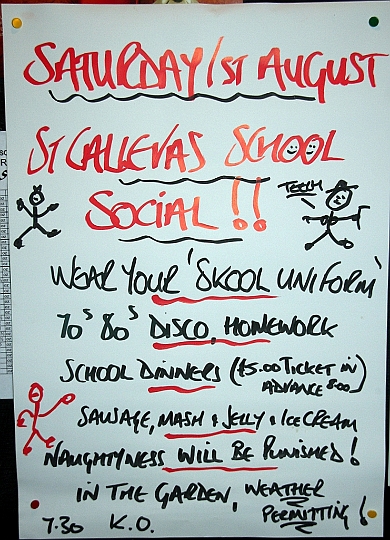 SATURDAY 1ST AUGUST
ST CALLEVAS SCHOOL
SOCIAL !!
TEECH
WEAR YOUR 'SKOOL UNIFORM'
70s 80s DISCO, HOMEWORK
SCHOOL DINNERS (£5.00 TICKET IN)
ADVANCE
SAUSAGE, MASH & JELLY & ICE CREAM
NAUGHTYNESS WILL BE PUNISHED!
IN THE GARDEN, WEATHER
PERMITTING!
7.30 K.O.